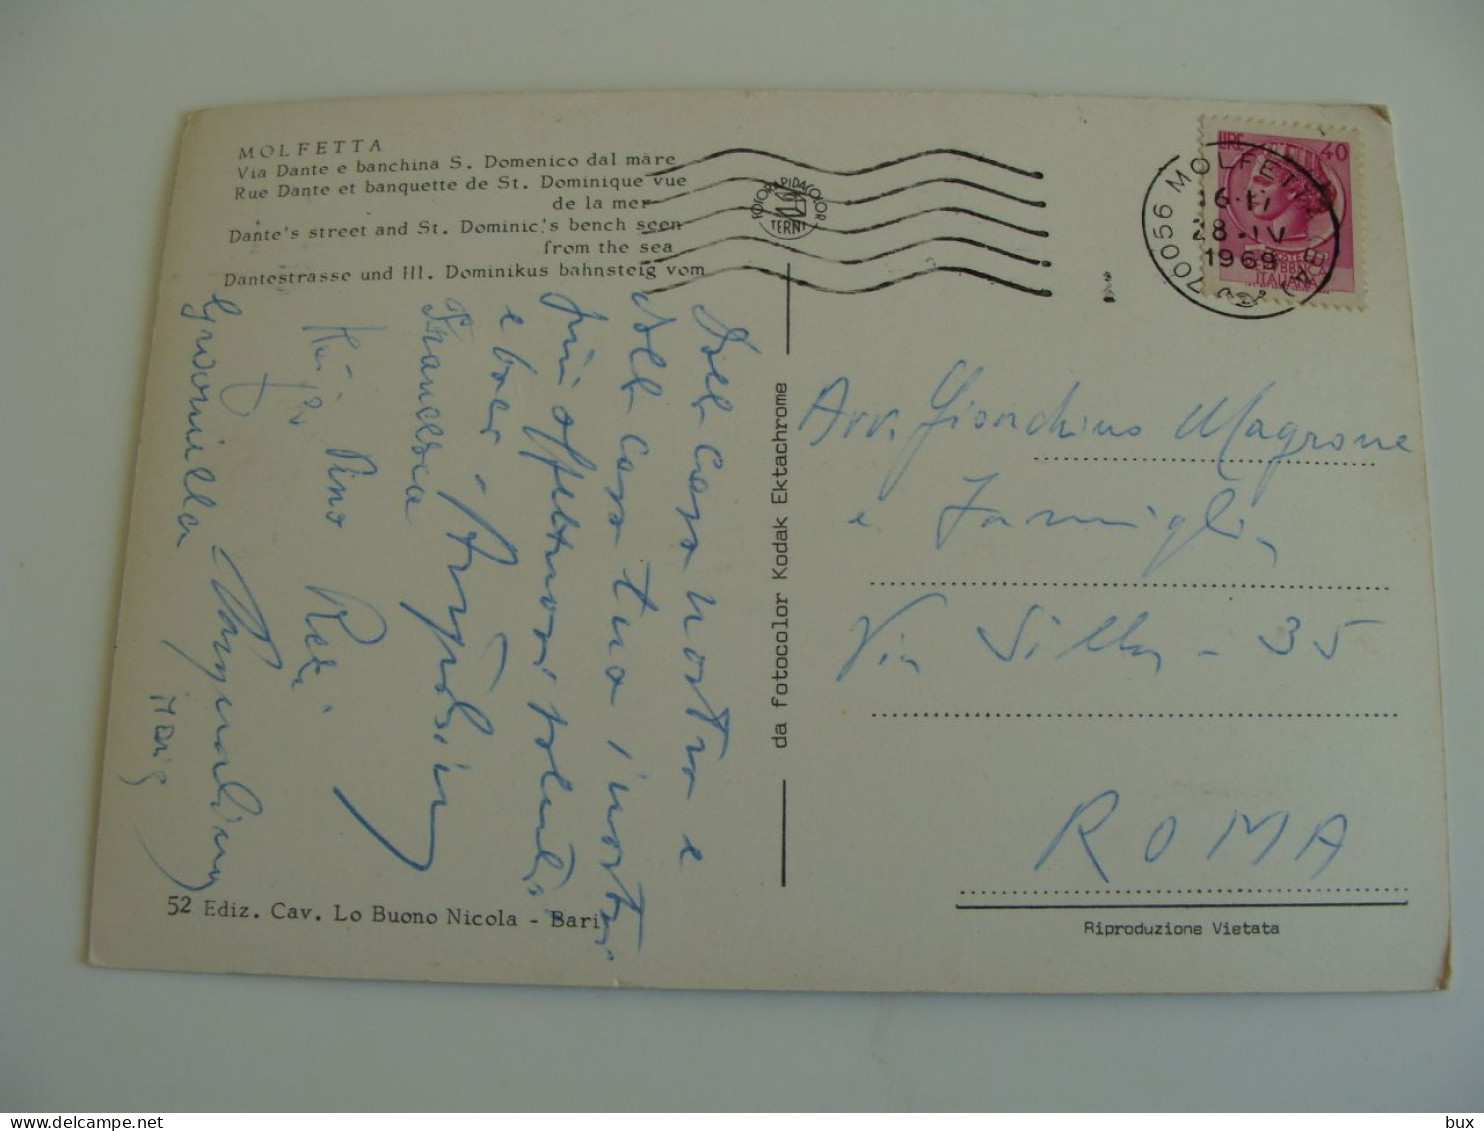 MOLFETTA
Via Dante e banchina S. Domenico dal mare
Rue Dante et banquette de St. Dominique vue
de la mer
Dante's street and St. Dominic's bench seen
from the sea
Dantestrasse und III. Dominikus bahnsteig vom
FOTORAPIDACOLOR
TERNI
LIRE 40
POSTE
REPUBBLICA
ITALIANA
70056 MOLFETTA (BARI)
28.IV
1969
Dalla casa nostra e
dalla casa tua i nostri
più affettuosi saluti
e baci
Francesca
Pino
Pasqualino
Maria
da fotocolor Kodak Ektachrome
Avv. Gioacchino Magrone
e Famiglia
Via Silla - 35
ROMA
52 Ediz. Cav. Lo Buono Nicola - Bari
Riproduzione Vietata
bux